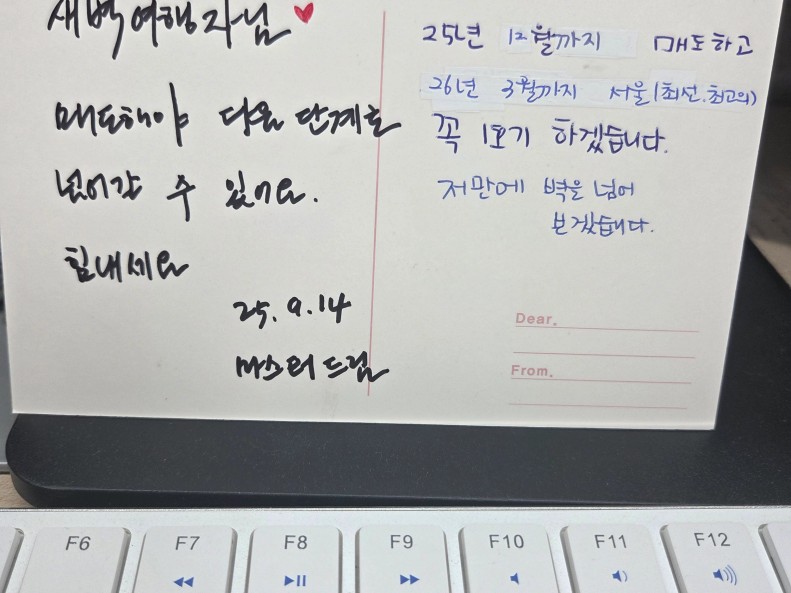 새벽여행자님
매도해야 다음 단계로
넘어갈 수 있어요.
힘내세요
25. 9. 14
마스터 드림
25년 12월까지 매도하고
26년 3월까지 서울(최선.최고의)
꼭 1호기 하겠습니다.
저만에 벽을 넘어
보겠습니다.
Dear.
From.
F6
F7
F8
F9
F10
F11
F12